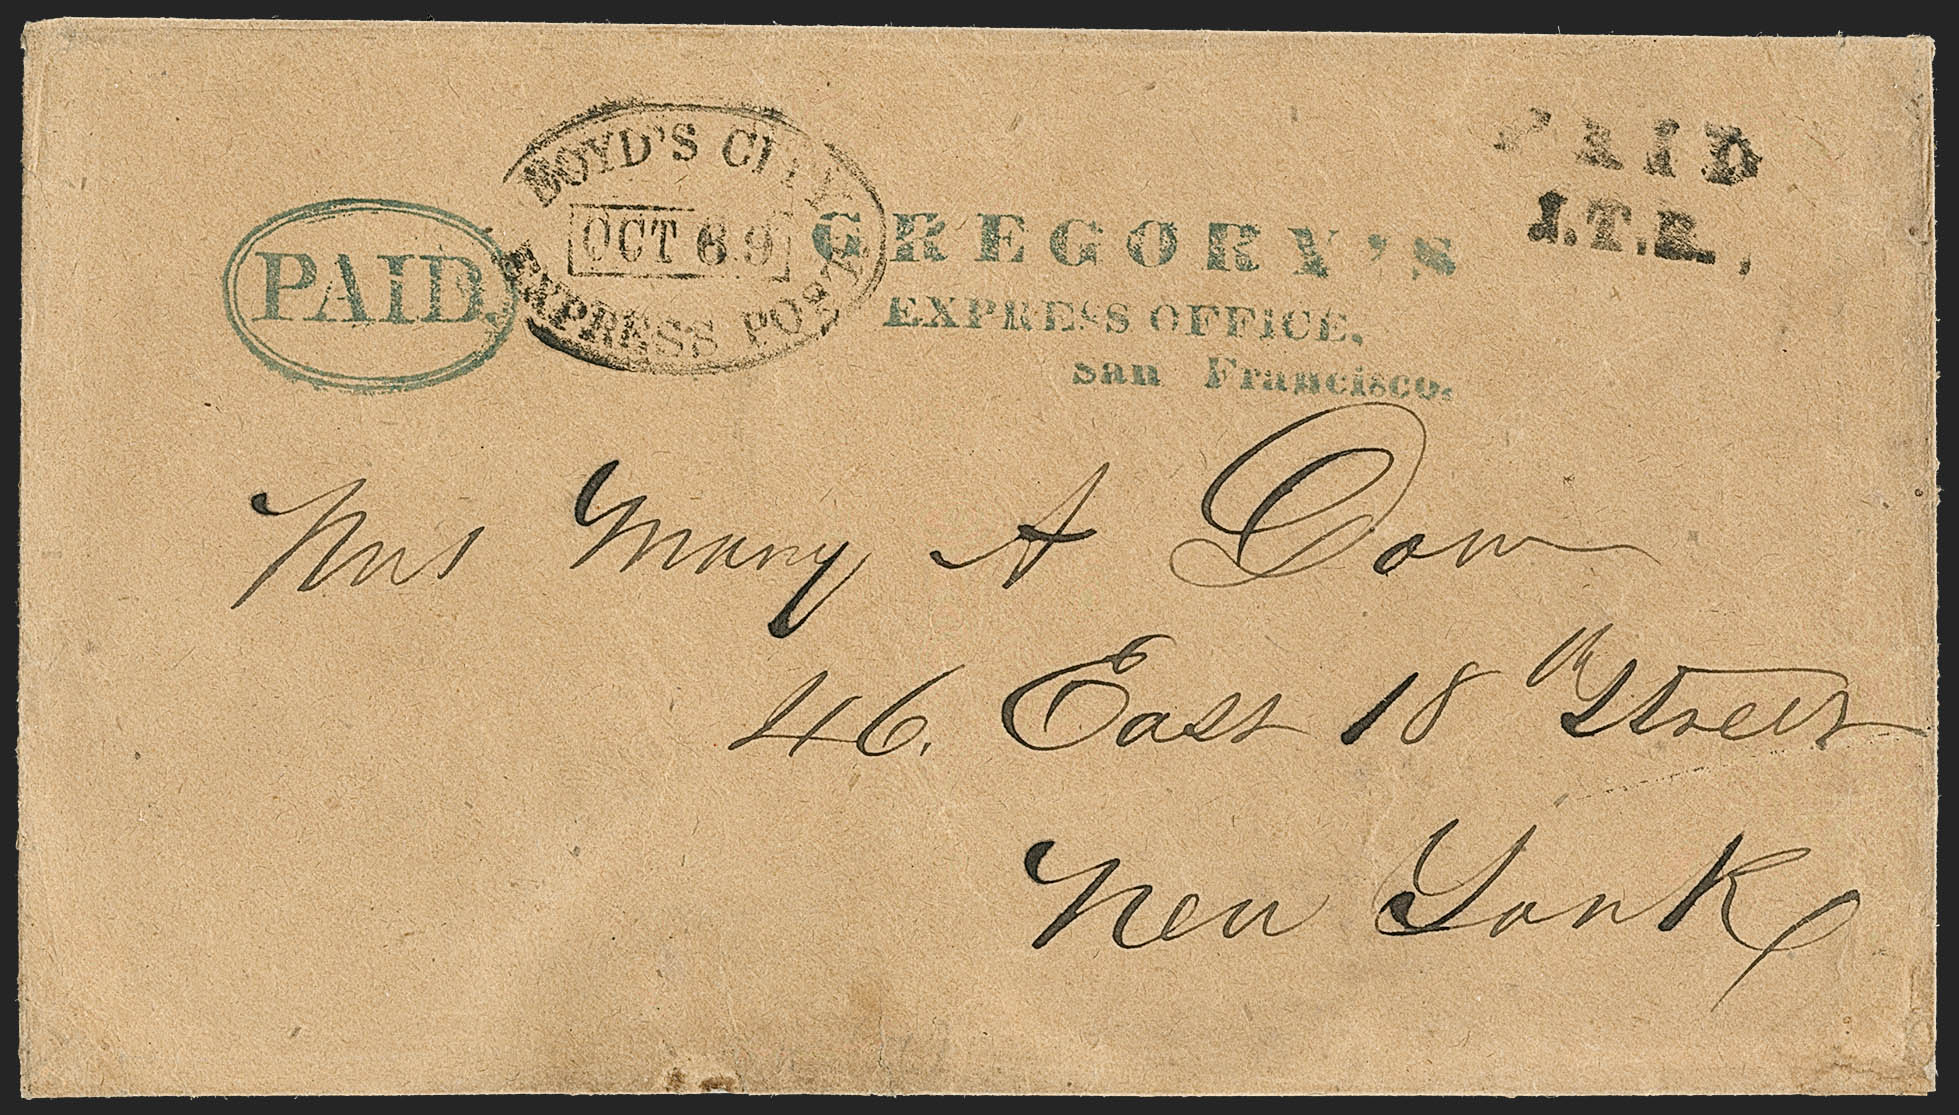 BOYD'S CITY
OCT 6 9
EXPRESS POST
PAID.
GREGORY'S
EXPRESS OFFICE,
San Francisco.
PAID
J.T.B.,
Mrs Mary A Dow
46. East 18th Street
New York